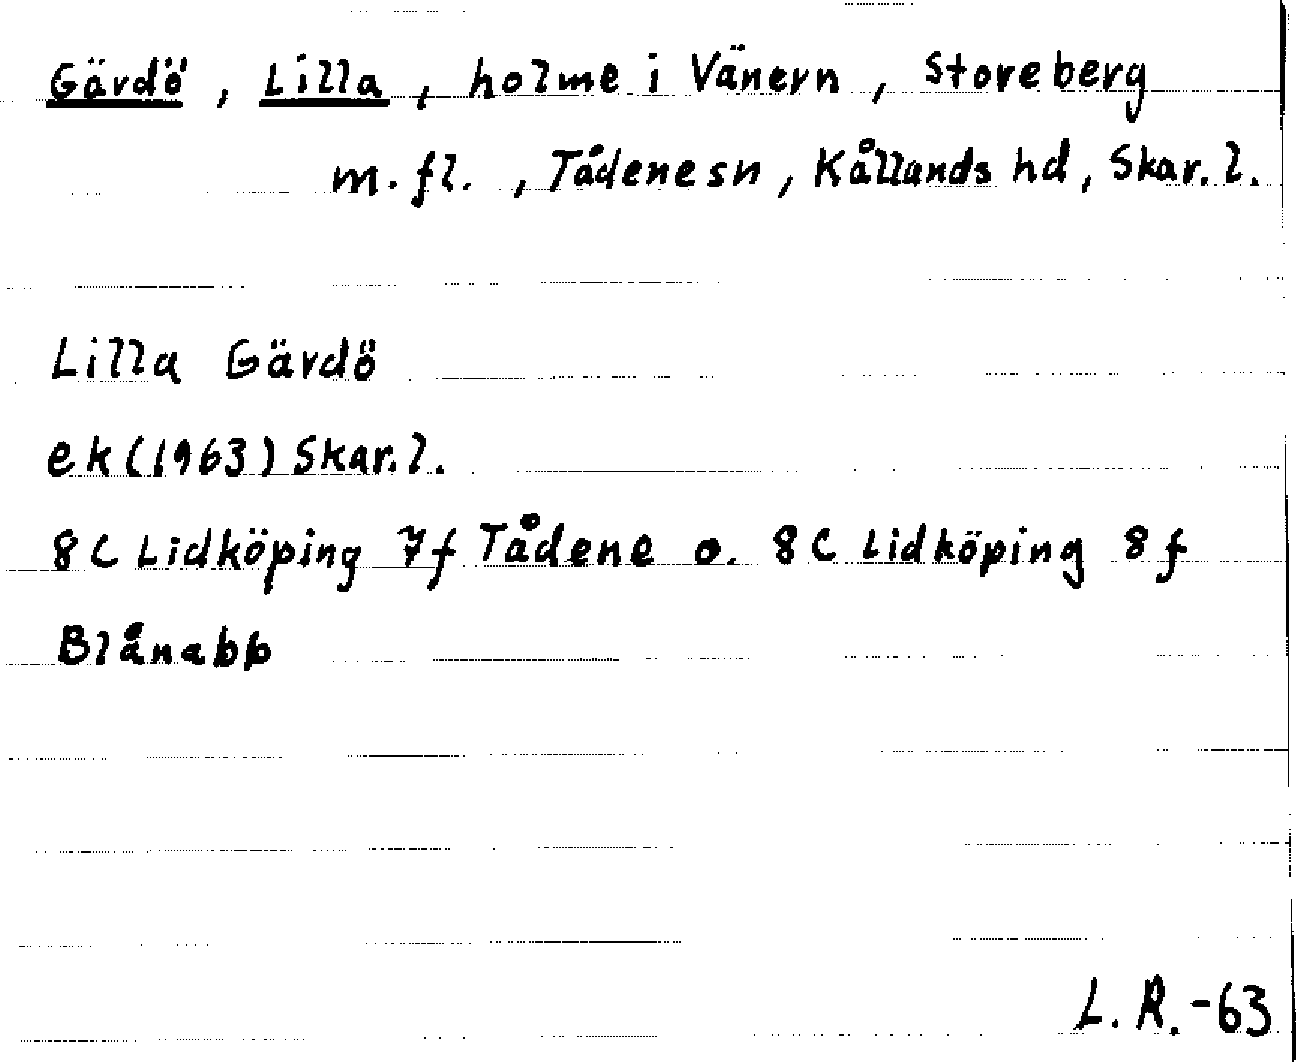 Gärdö, Lilla, holme i Vänern, Storeberg
m.fl., Tådene sn, Kållands hd, Skar. l.
Lilla Gärdö
ek (1963) Skar. l.
8C Lidköping 7f Tådene o. 8C Lidköping 8f
Blånabb
L. R. -63